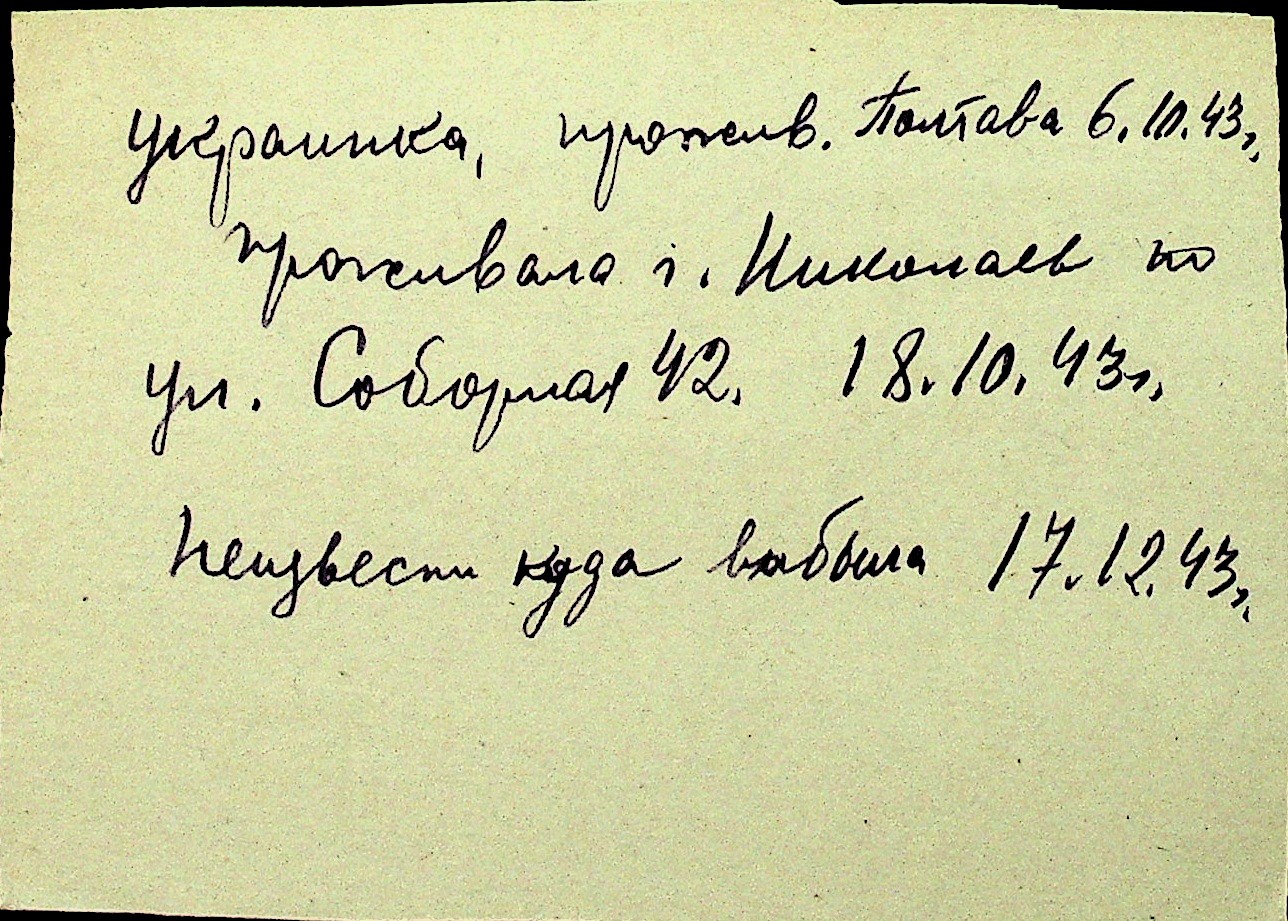 украинка, прожив. Полтава 6.10.43г.
проживала г. Николаев по
ул. Соборная 42. 18.10.43г.
Неизвестн куда выбыла 17.12.43г.